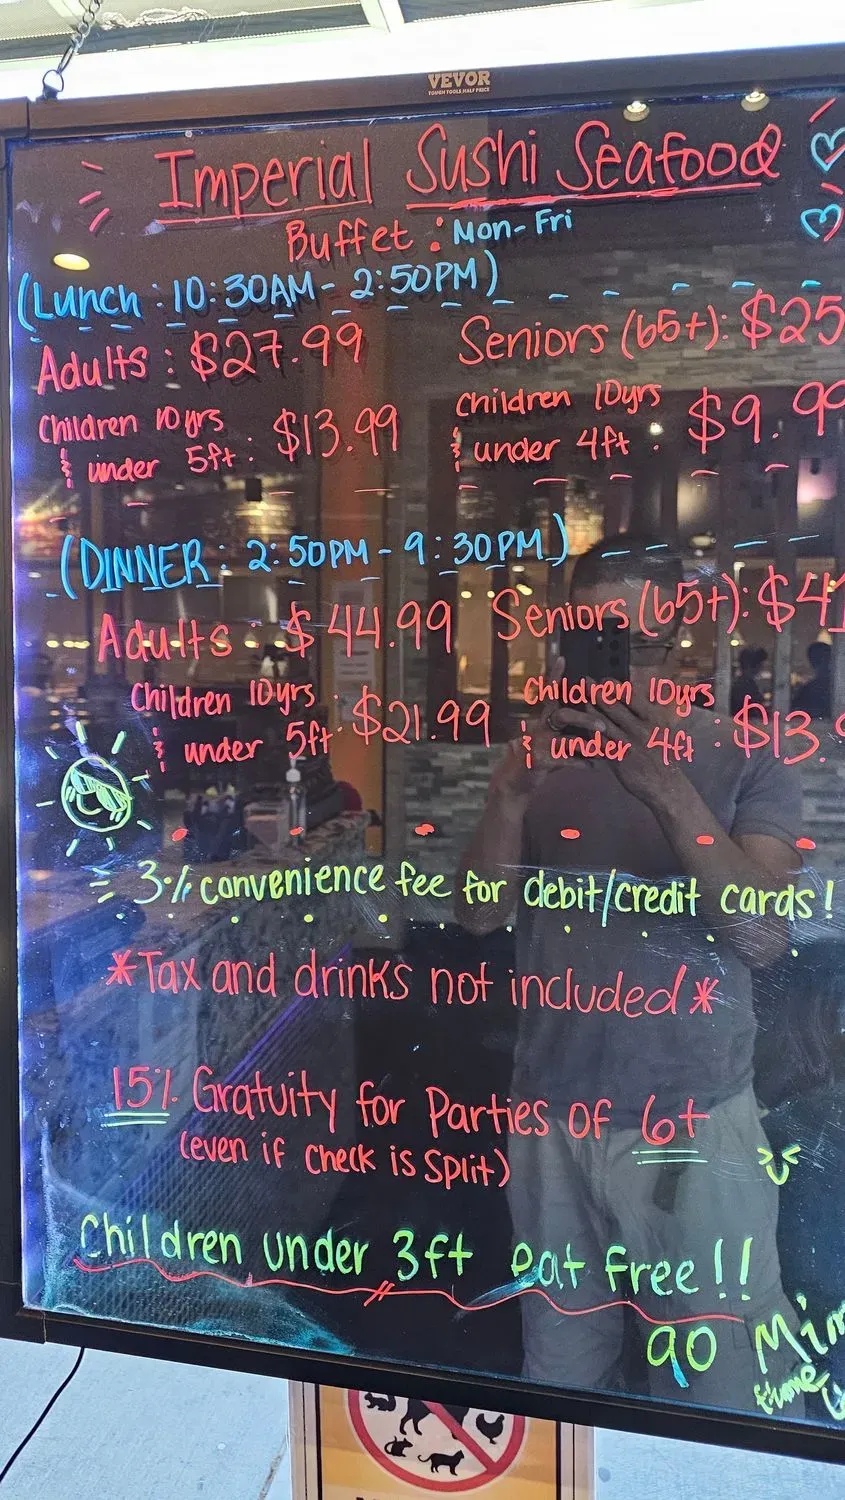 VEVOR
TOUGH TOOLS, HALF PRICE
Imperial Sushi Seafood
Buffet : Mon-Fri
(Lunch : 10:30AM - 2:50PM)
Adults : $27.99
Seniors (65+): $25
Children 10yrs
& under 5ft : $13.99
Children 10yrs
& under 4ft : $9.99
(DINNER : 2:50PM - 9:30PM)
Adults : $44.99
Seniors (65+): $41
Children 10yrs
& under 5ft : $21.99
Children 10yrs
& under 4ft : $13.9
3% convenience fee for debit/credit cards!
*Tax and drinks not included*
15% Gratuity for Parties of 6+
(even if check is split)
Children under 3ft eat free!!
90 Min
time